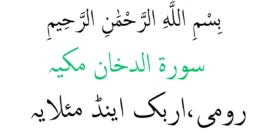 بِسْمِ اللَّهِ الرَّحْمَٰنِ الرَّحِيمِ
سورة الدخان مكيه
رومی،اربک اینڈ مئلایہ